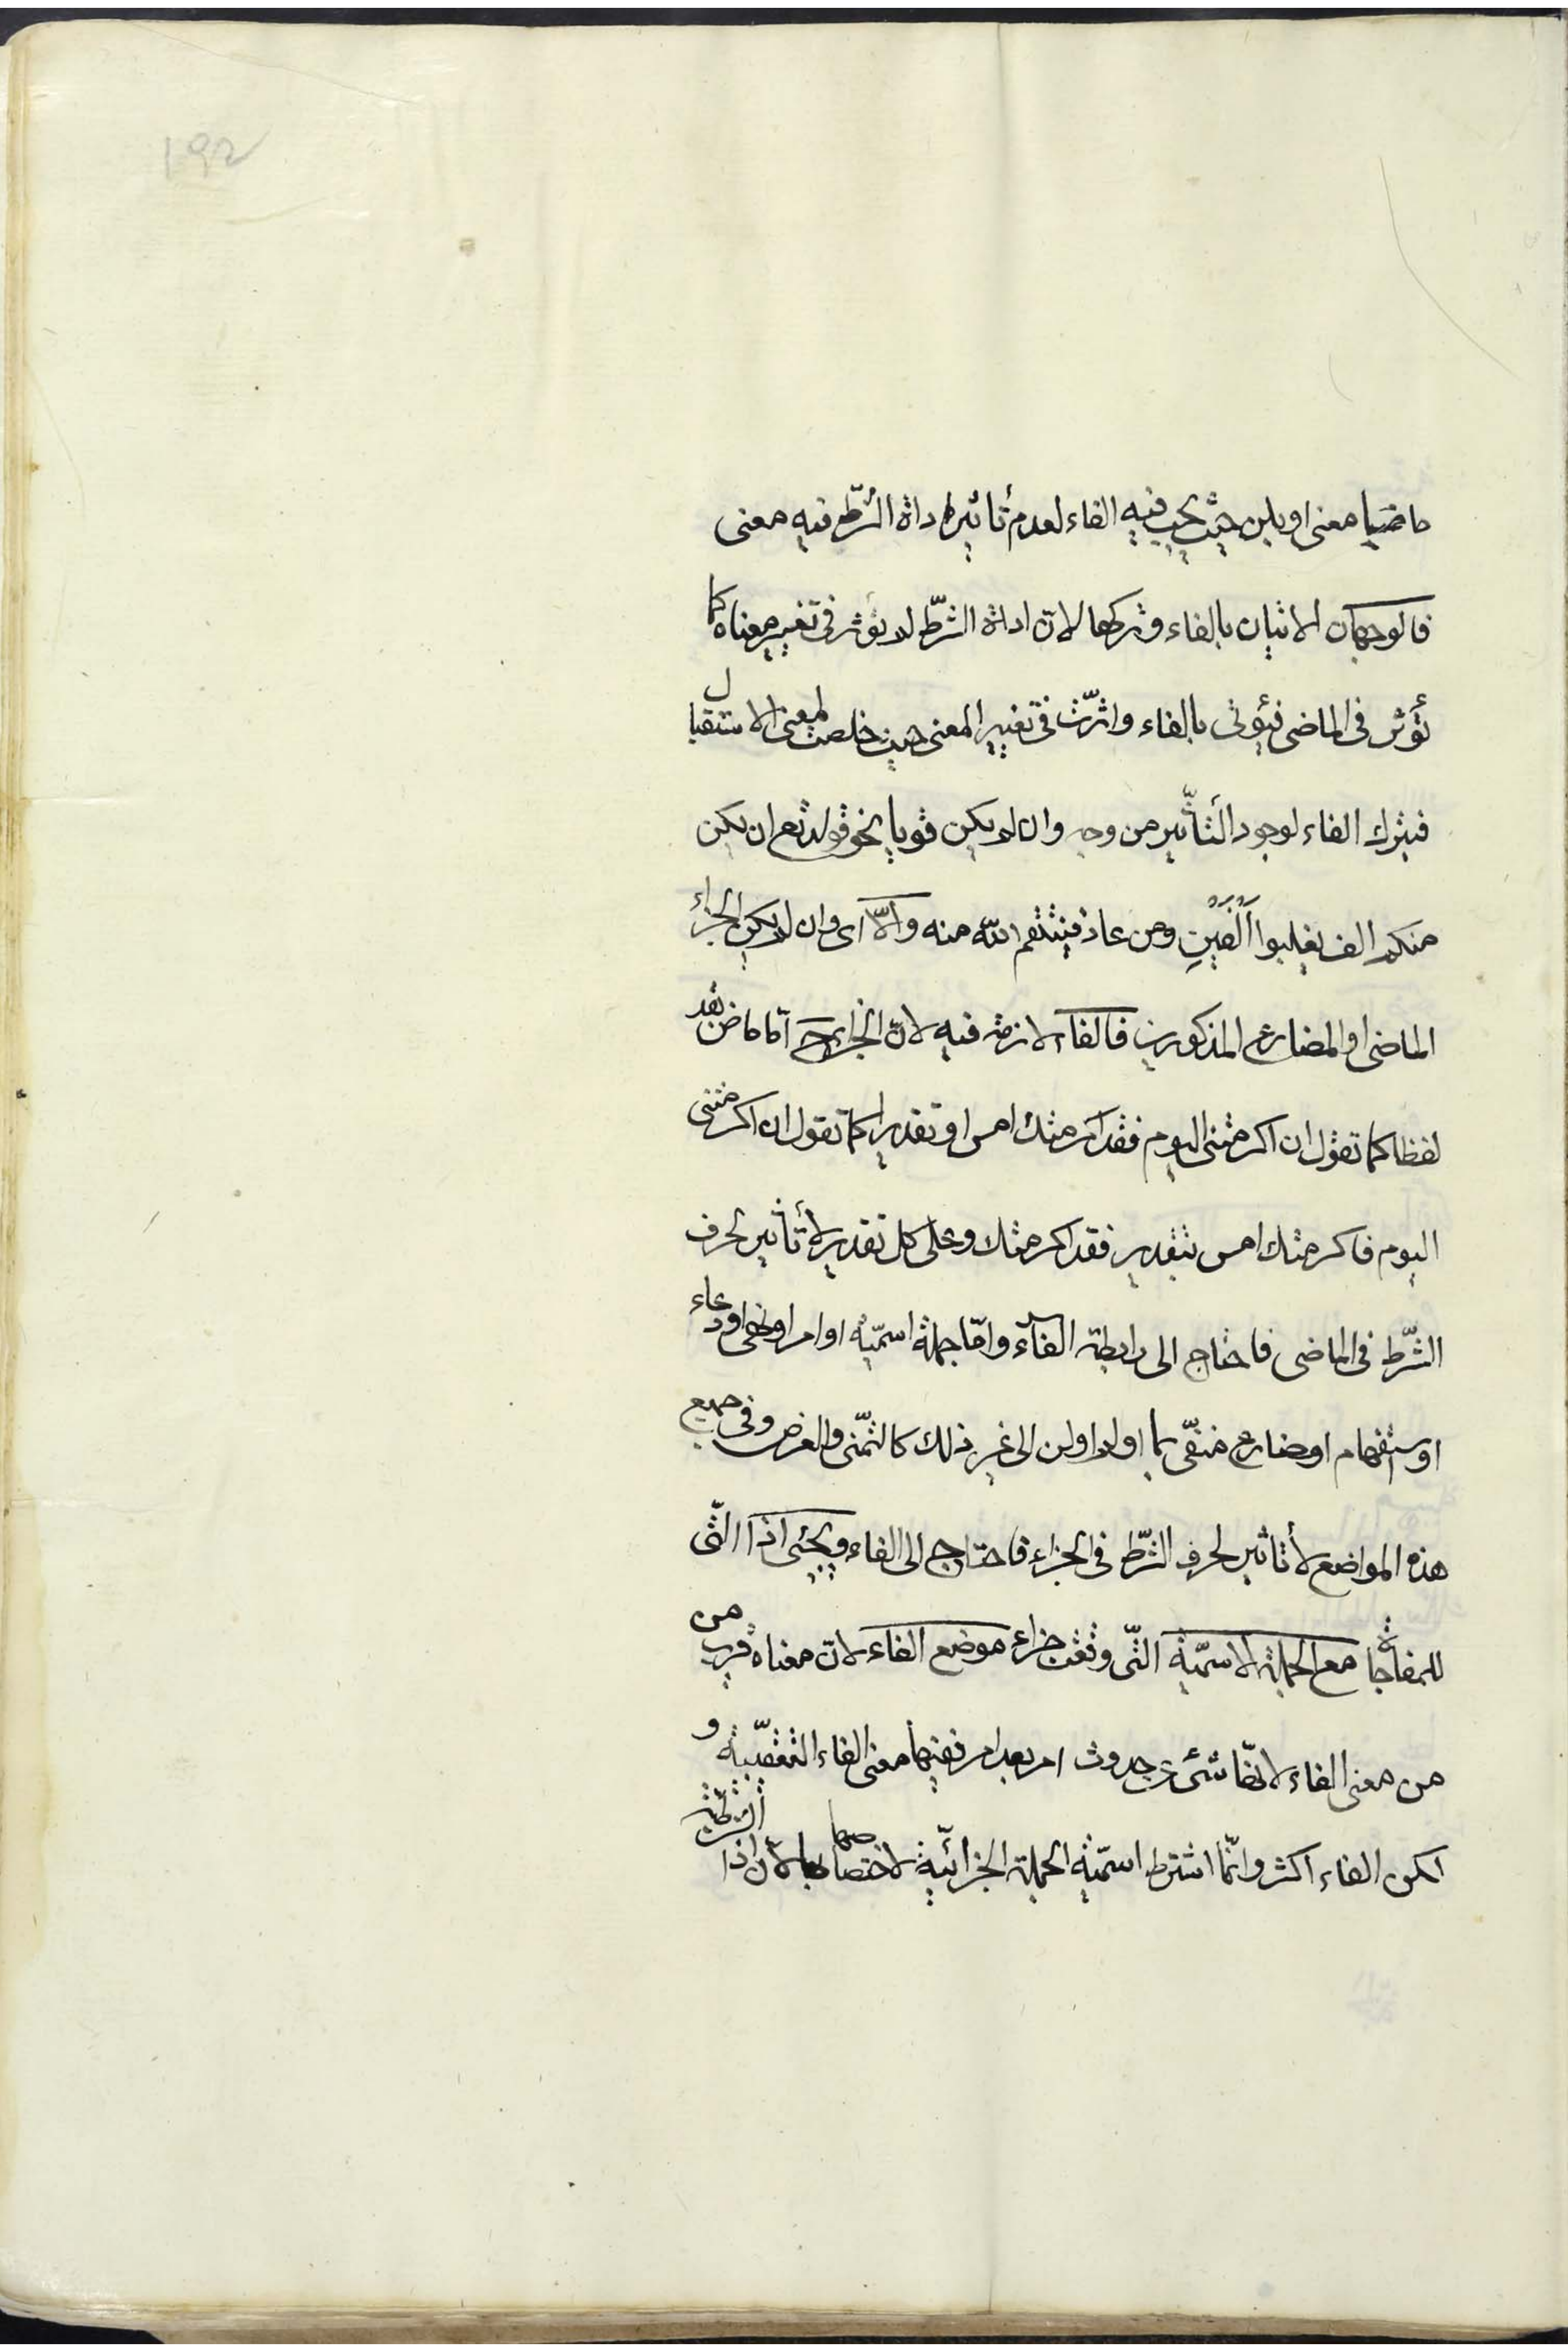 192
ماضيا معنى او بلن حيث يجب فيه الفاء لعدم تأثير اداة الشّرط فيه معنى
فالوجهان الاتيان بالفاء وتركها لانّ اداة الشّرط لم تؤثر فى تغيير معناه كما
تؤثر فى الماضى فيؤتى بالفاء واثّرت فى تغيير المعنى حيث خلصت لمعنى الاستقبال
فيترك الفاء لوجود التّأثير من وجه وان لم يكن قويا نحو قوله تع ان يكن
منكم الف يغلبوا الفين ومن عاد فينتقم الله منه والّا اى وان لم يكن الجزاء
الماضى او المضارع المذكورين فالفاء لازمة فيه لانّ الجزاء ح امّا ماض بقد
لفظا كما تقول ان اكرمتنى اليوم فقد اكرمتك امس او تقديرا كما تقول ان اكرمتنى
اليوم فاكرمتك امس بتقدير فقد اكرمتك وعلى كل تقدير لا تأثير لحرف
الشّرط فى الماضى فاحتاج الى رابطة الفاء وامّا جملة اسميّة او امر او نهى او دعاء
او استفهام او مضارع منفّى بما او لم او لن الى غير ذلك كالتّمنى والعرض وفى جميع
هذه المواضع لا تأثير لحرف الشّرط فى الجزاء فاحتاج الى الفاء ويجئى اذا الّتى
للمفاجاة مع الجملة الاسميّة الّتى وقعت جزاء موضع الفاء لانّ معناه قريب من
من معنى الفاء لانّها تنبئ عن حدوث امر بعد امر ففيها معنى الفاء التعقيبيّة و
لكن الفاء اكثر وانّما اشترط اسميّة الجملة الجزائيّة لاختصاصها بها لانّ اذا الشرطيّة